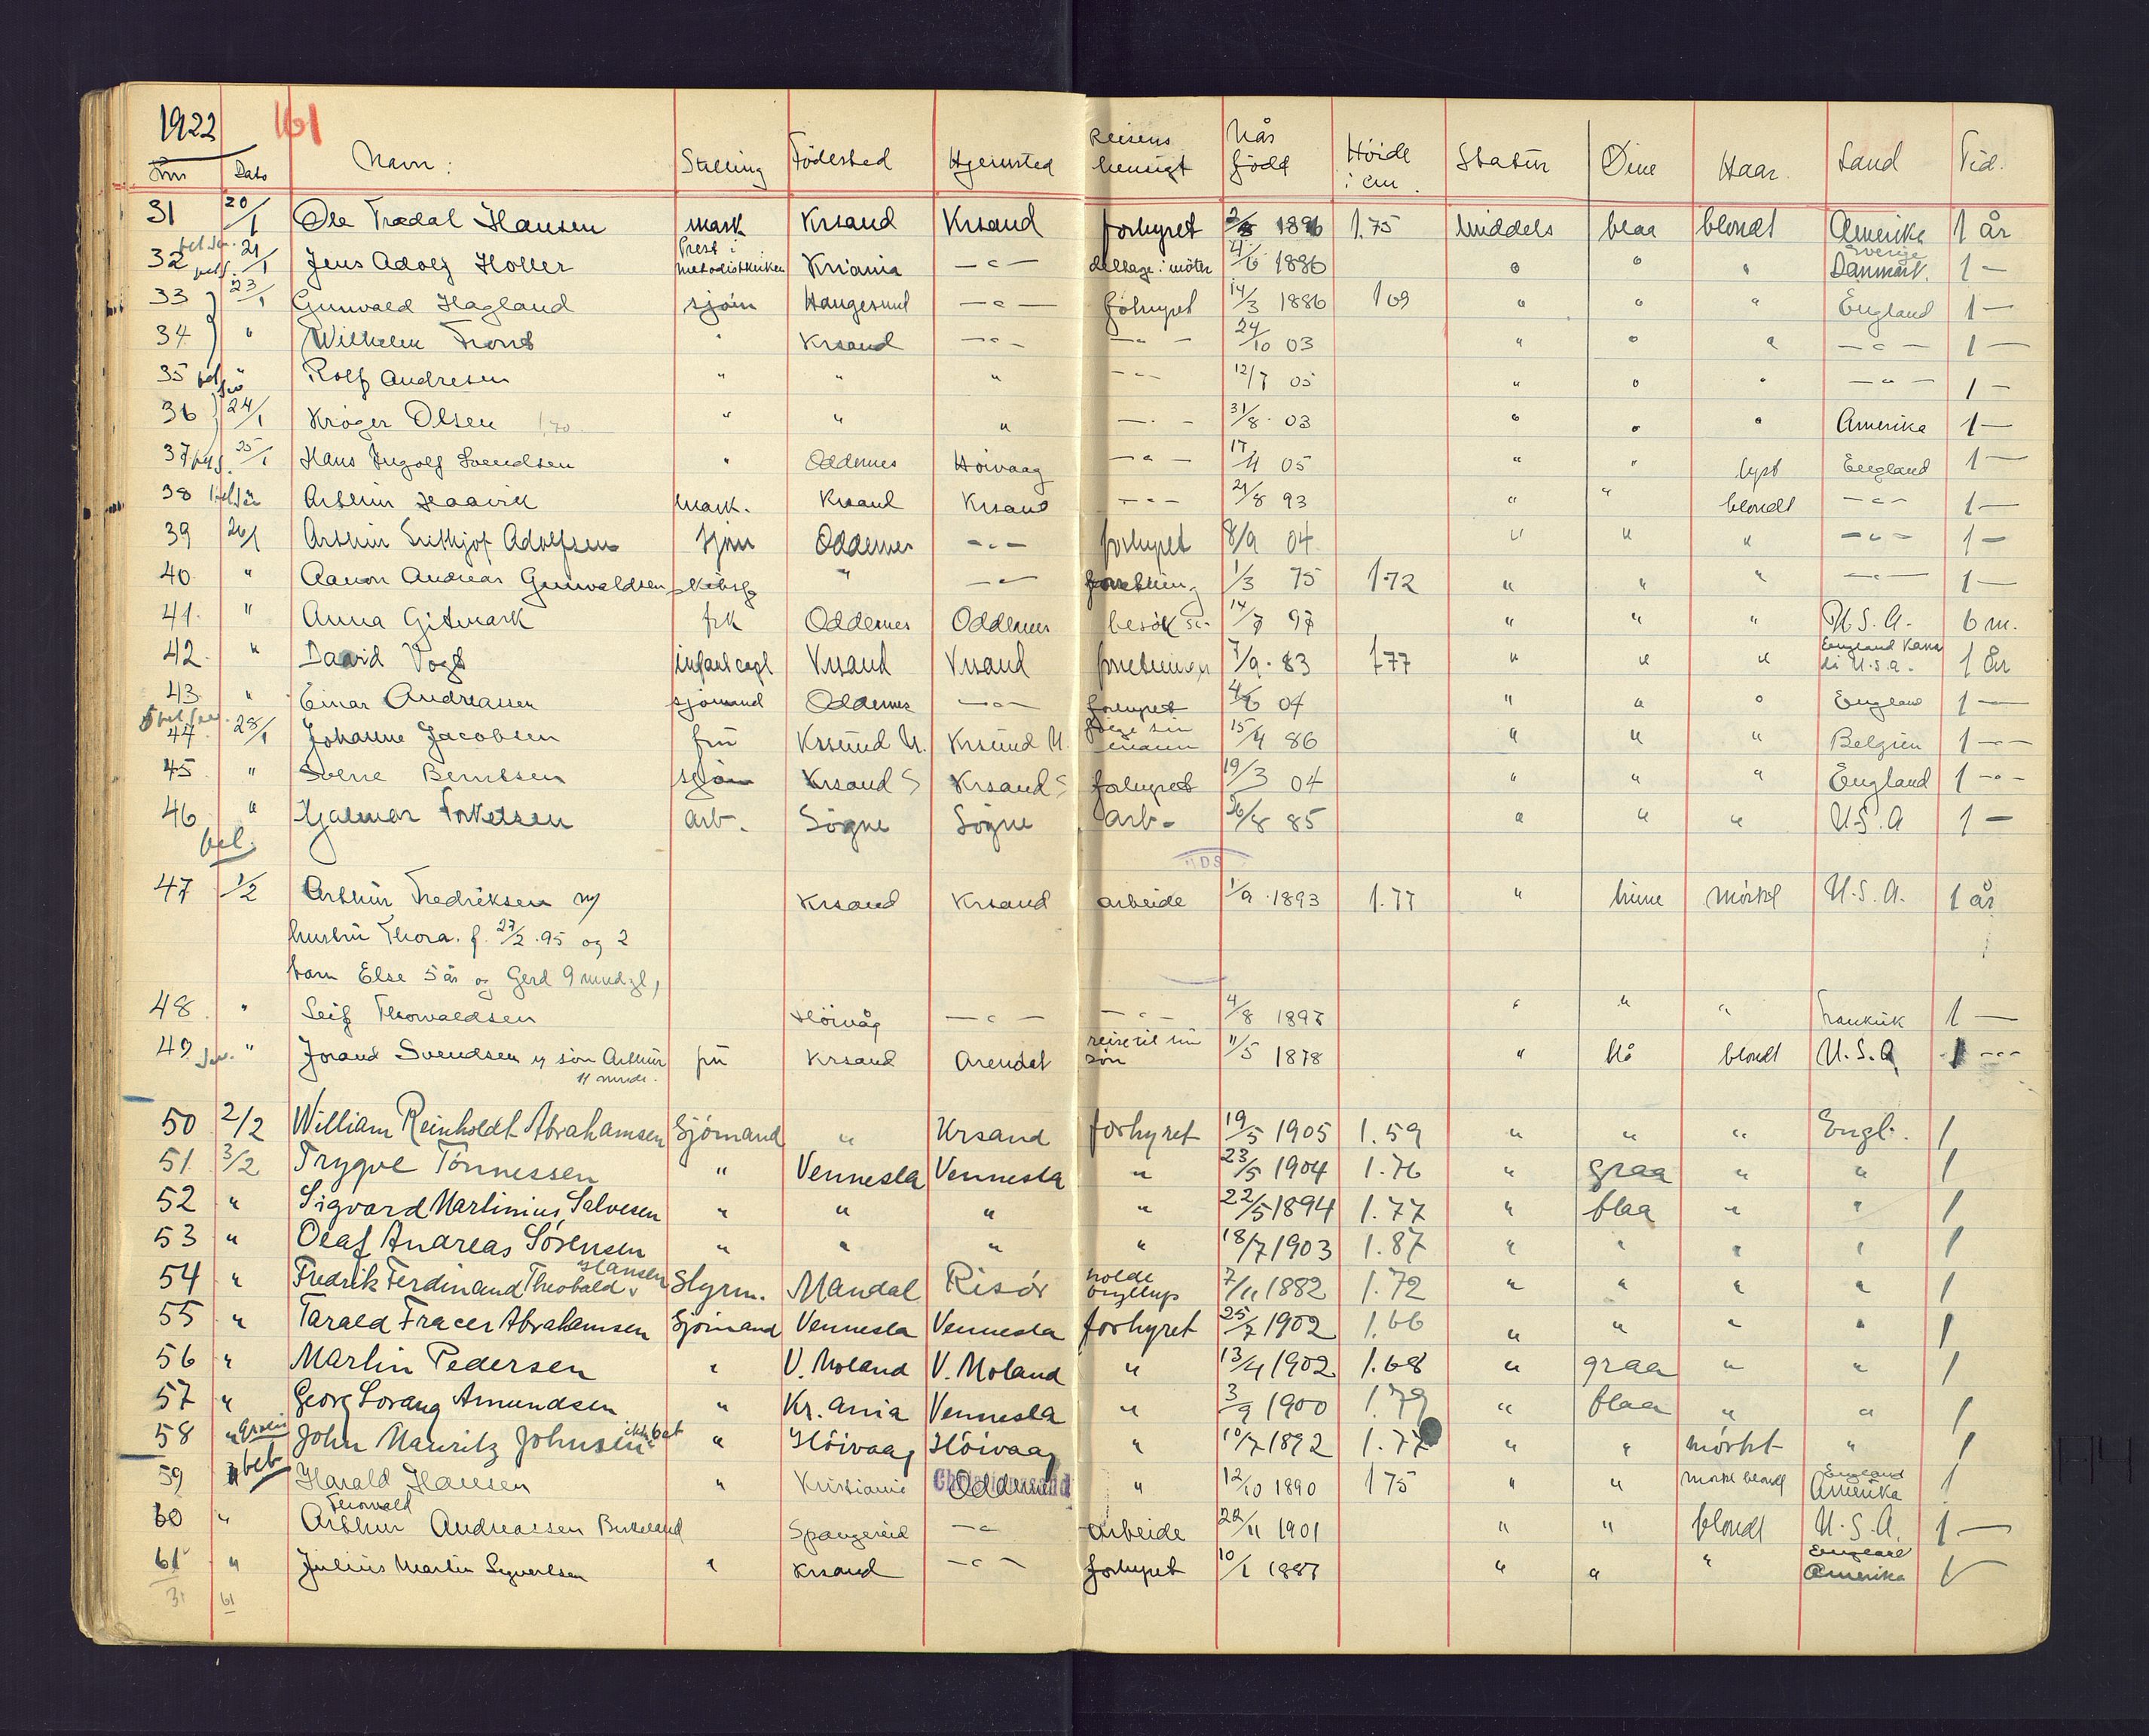 1922 161
Nm Dato Navn: Stilling Födested Hjemsted Reisens hensigt Nås född Höide i cm. Statur Öine Haar Land Tid.
31 20/1 Ole Trædal Hansen mask Krsand Krsand forhyret 1896 1.75 Middels blaa blondt Amerika 1 år
32 21/1 Jens Adolf Holler Prest i metodistkirken Kr'ania — " — deltage i möter 4/6 1886 " " " Sverige Danmark. 1 —
33 23/1 Gunvald Hagland sjöm Haugesund — " — forhyret 14/3 1886 169 " " " England 1 —
34 " Wilhelm " Krsand — " — — " — 24/10 03 " " " — " — 1 —
35 bet " Rolf Andresen " " " — " — 12/7 05 " " " — " — 1 —
36 24/1 Kröger Olsen 1.70 " " " — " — 31/8 03 " " " Amerika 1 —
37 25/1 Hans Ingolf Svendsen " Oddernes Höivaag — " — 17/4 05 " " lyst England 1 —
38 Arthur Haavik mask. Krsand Krsand — " — 21/8 93 " " blondt — " — 1 —
39 26/1 Arthur Frithjof Adolfsen sjöm Oddernes — " — forhyret 8/9 04 " " " — " — 1 —
40 " Aanon Andreas Gunvaldsen skibsf " — " — forretning 1/3 75 1.72 " " " — " — 1 —
41. " Anna Gitmark frk Oddernes Oddernes besök 14/7 97 " " " U.S.A. 6 m.
42. " David Vogt Krsand Krsand forretninger 7/9. 83 1.77 " " " England Kana da U.S.A. 1 år
43 " Einar Andreasen sjömand Oddernes — " — forhyret 4/6 04 " " " England 1 —
44 28/1 Johanne Jacobsen frü Krsund N. Krsund N. fölge sin mann 15/4 86 " " " Belgien 1 — " —
45 " Sverre Berntsen sjöm Krsand S Krsand S forhyret 19/3 04 " " " England 1 — " —
46 " Hjalmar Torkelsen arb. Sögne Sögne arb. 26/8 85 " " " U.S.A 1 —
bet.
47 1/2 Arthur Fredriksen m/ Krsand Krsand arbeide 1/9.1893 1.77 " brune mörkt U.S.A. 1 år
hustru Thora. f. 27/2.95 og 2
barn Else 5 år og Gerd 9 mndgl,
48 " Leif Thorvaldsen Höivåg — " — — " — 4/8 1897 " " " Frankrik 1 —
49 " Jorand Svendsen m/ sön Arthur 11 mndr. frü Krsand Arendal reise til sin sön 11/5 1878 " blå blondt U.S.A 1 ---
50 2/2 William Reinholdt Abrahamsen Sjömand " Krsand forhyret 19/5 1905 1.59 " " " Engl. 1
51 3/2 Trygve Tönnessen " Vennesla Vennesla " 23/5 1904 1.76 " graa " " 1
52 " Sigvard Martinius Salvesen " " " " 22/5 1894 1.77 " blaa " " 1
53 " Olaf Andreas Sörensen " " " " 18/7 1903 1.87 " " " " 1
54 " Fredrik Ferdinand Theobald Hansen Styrm. Mandal Risör holde bryllup 7/11 1882 1.72 " " " " 1
55 " Tarald Fracer Abrahamsen Sjömand Vennesla Vennesla forhyret 25/7 1902 1.66 " " " " 1
56 " Martin Pedersen " V. Moland V. Moland " 13/4 1902 1.68 " graa " " 1
57 " Georg Sorang Amundsen " Kr.ania Vennesla " 3/9 1900 1.79 " blaa " " 1
58 " John Mauritz Johnsen ikke bet " Höivaag Höivaag " 10/7 1892 1.77 " " mörkt " 1
59 bet Harald Hansen " Kristiania Oddernes " 12/10 1890 175 " " mörkt blondt England Amerika 1
60 " Arthur Thorvald Andreassen Birkeland Spangereid — " arbeide 22/11 1901 " " blondt U.S.A. 1 —
61 " Julius Martin Syvertsen " Krsand — " — forhyret 10/1 1887 " " " England Amerika 1
31 61